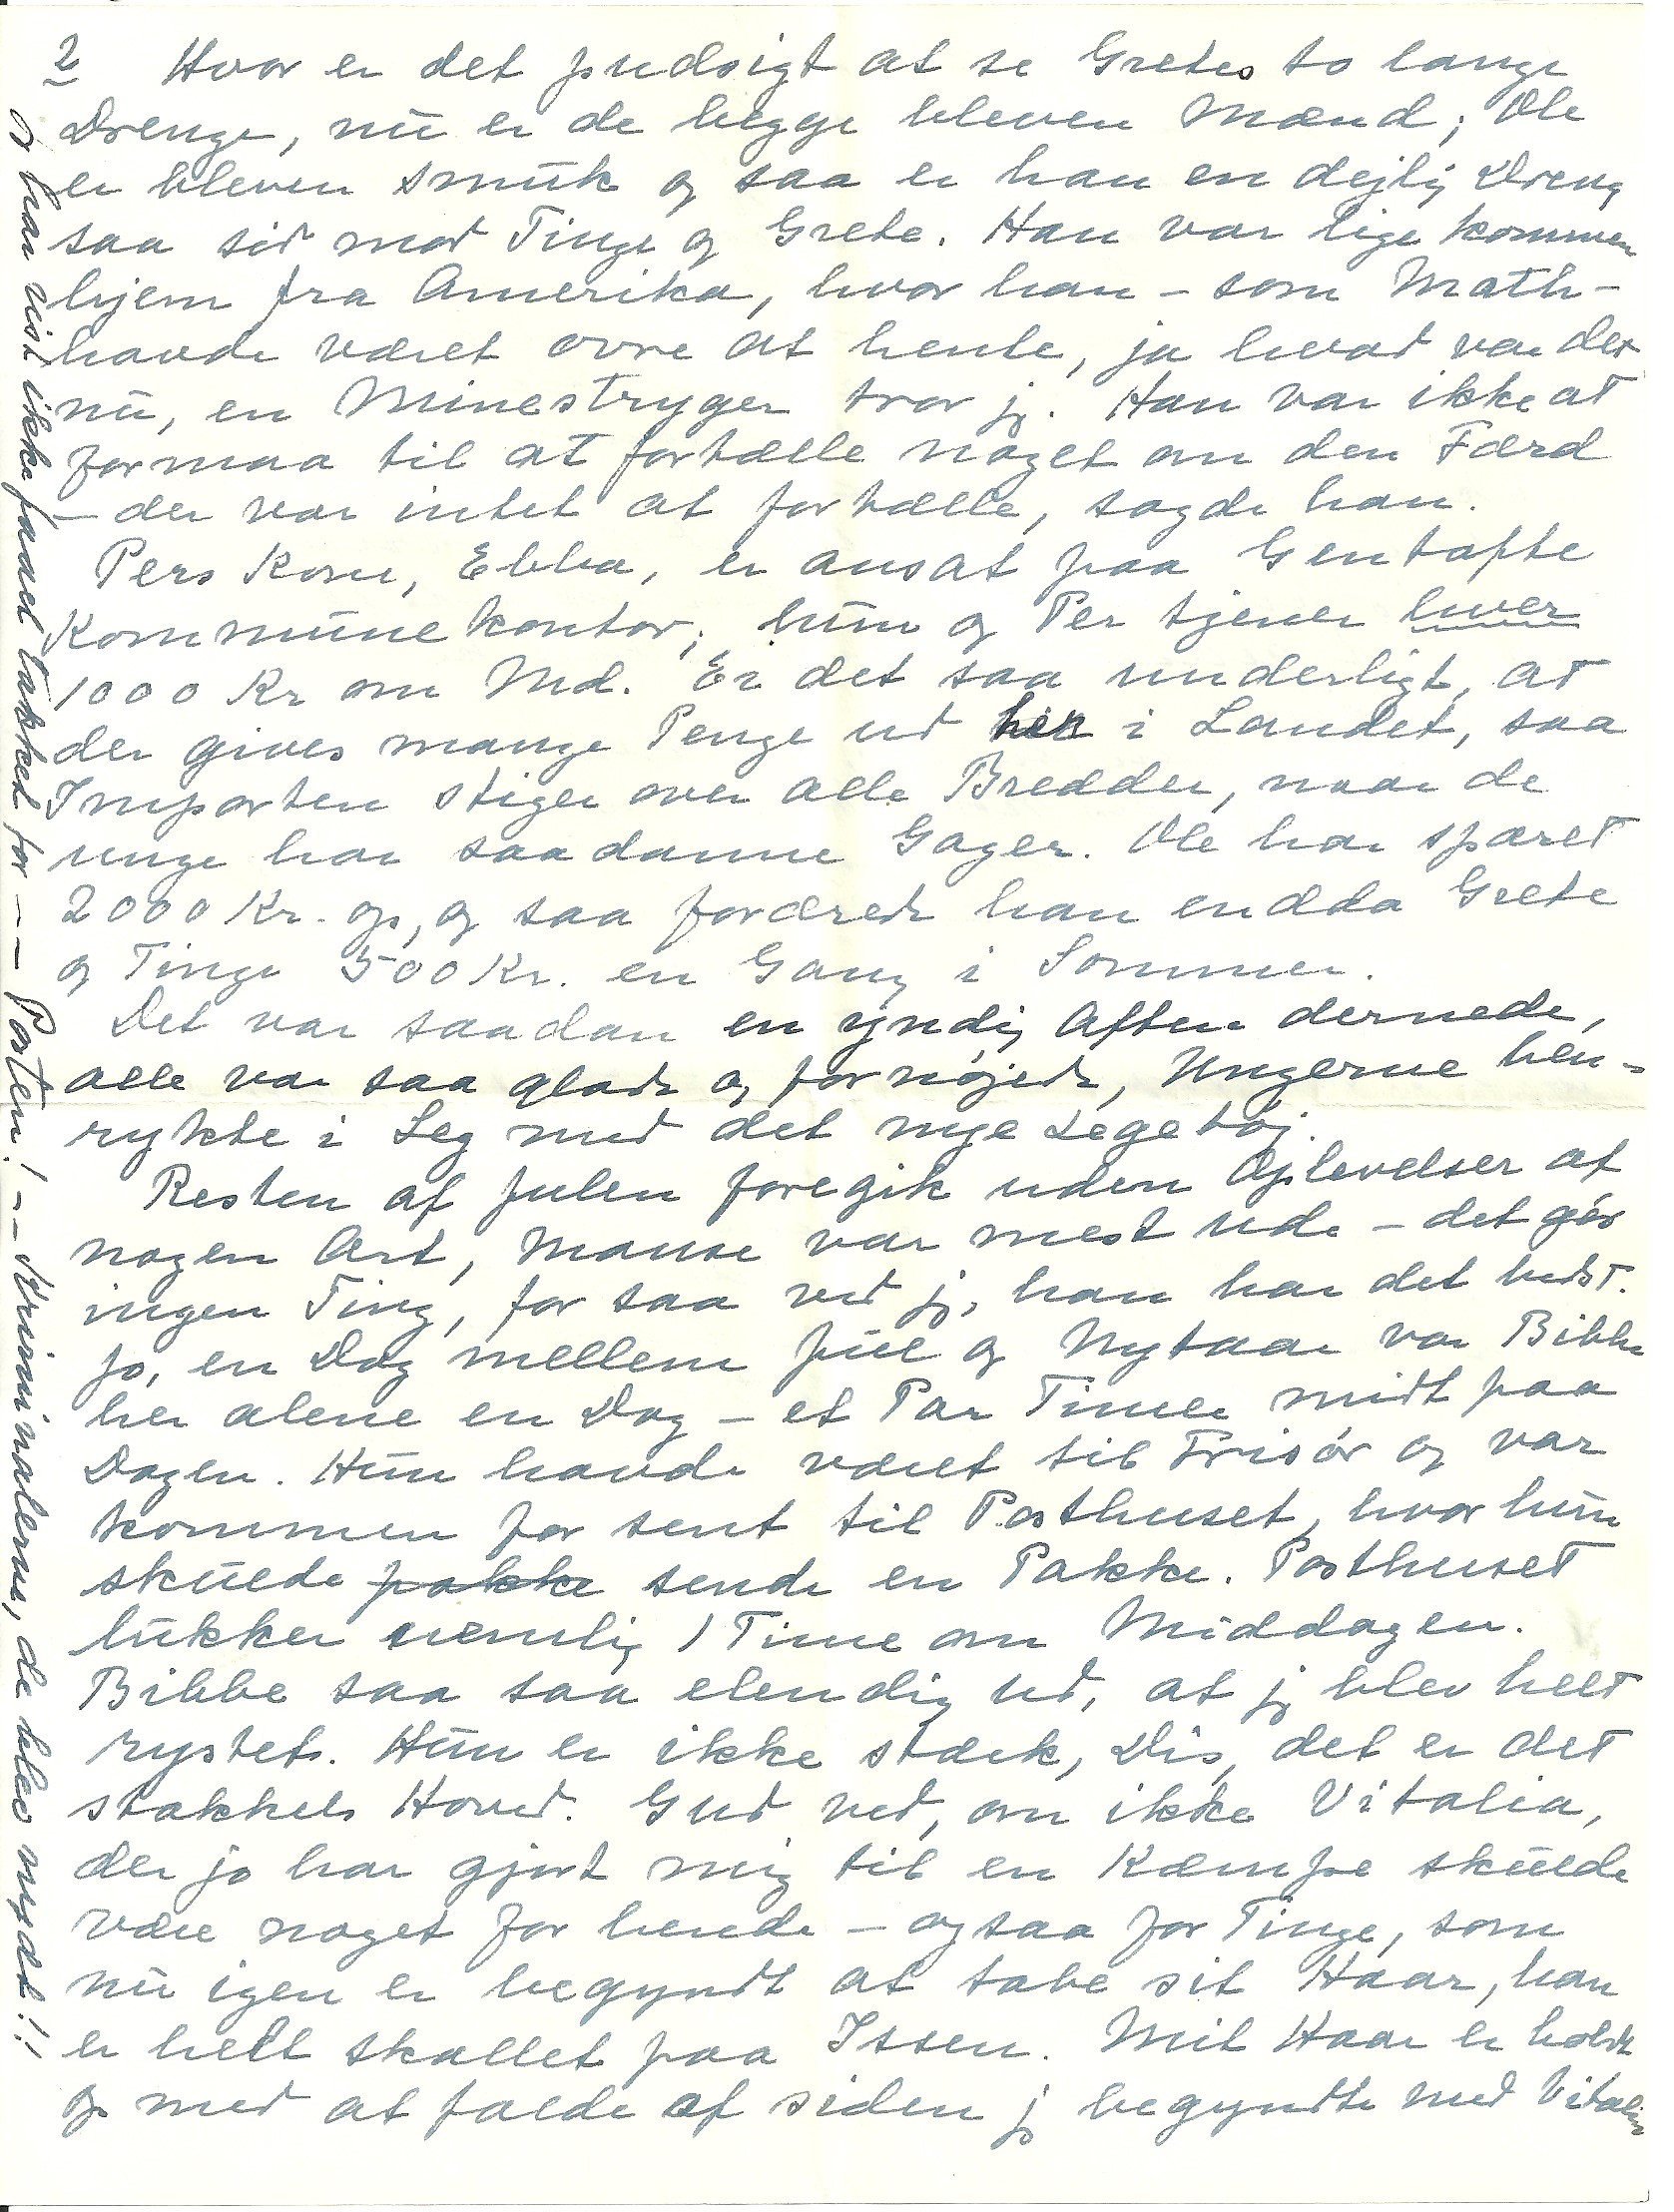 2 Hvor er det pudsigt at se Gretes to lange
Drenge, nu er de begge bleven Mænd; Ole
er bleven smuk og saa er han en dejlig Dreng
saa sød mod Tinge og Grete. Han var lige kommen
hjem fra Amerika, hvor han – som Math –
havde været ovre at hente, ja hvad var det
nu, en Minestryger tror jg. Han var ikke at
formaa til at fortælle noget om den Færd
– der var intet at fortælle, sagde han.
Pers Kone, Ebba, er ansat paa Gentofte
Kommunekontor; hun og Per tjener hver
1000 Kr om Md. Er det saa underligt, at
der gives mange Penge ud her i Landet, saa
Importen stiger over alle Bredder, naar de
unge har saadanne Gager. Ole har sparet
2000 Kr. op, og saa forærede han endda Grete
og Tinge 500 Kr. en Gang i Sommer.
Det var saadan en yndig Aften dernede,
alle var saa glade og fornøjede, Ungerne hen-
rykte i Leg med det nye Legetøj.
Resten af Julen foregik uden Oplevelser af
nogen Art, Manse var mest ude – det gør
ingen Ting, for saa ved jg, han har det bedst.
Jo, en Dag mellem Jul og Nytaar var Bibbe
her alene en Dag – et Par Timer midt paa
Dagen. Hun havde været til Frisör og var
kommen for sent til Posthuset, hvor hun
skulde pakke sende en Pakke. Posthuset
lukker nemlig 1 Time om Middagen.
Bibbe saa saa elendig ud, at jg blev helt
rystet. Hun er ikke stærk, Dis, det er det
stakkels Hoved. Gud ved, om ikke Vitalia,
der jo har gjort mig til en Kæmpe skulde
være noget for hende – ogsaa for Tinge, som
nu igen er begyndt at tabe sit Haar, han
er helt skallet paa Issen. Mit Haar er holdt
op med at falde af siden jg begyndte med Vitalia
og han vist ikke faaet takket for –– Posten! –– Kriminalerne, de blev nydt!!